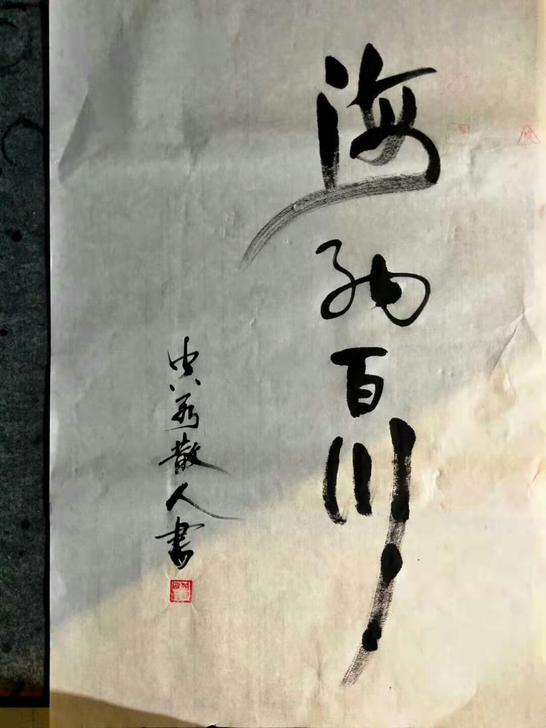 海纳百川
散人書